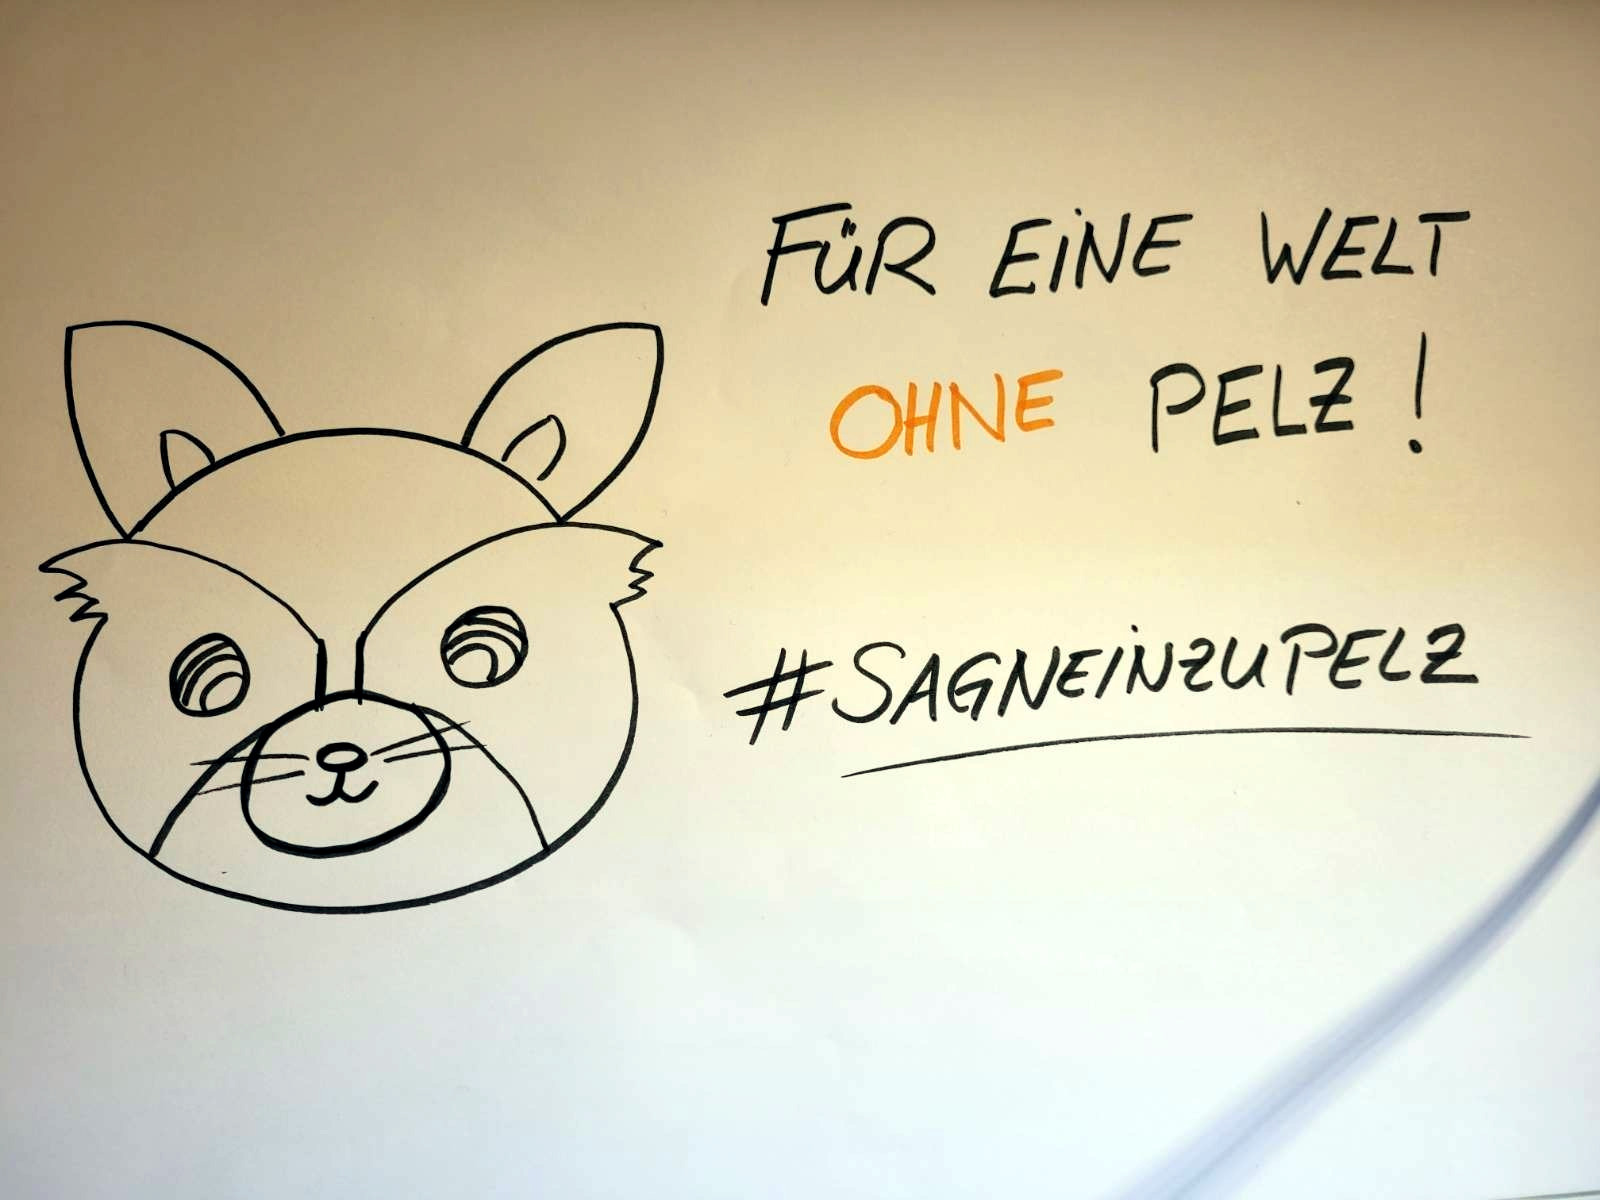 FÜR EINE WELT
OHNE PELZ!
#SAGNEINZUPELZ